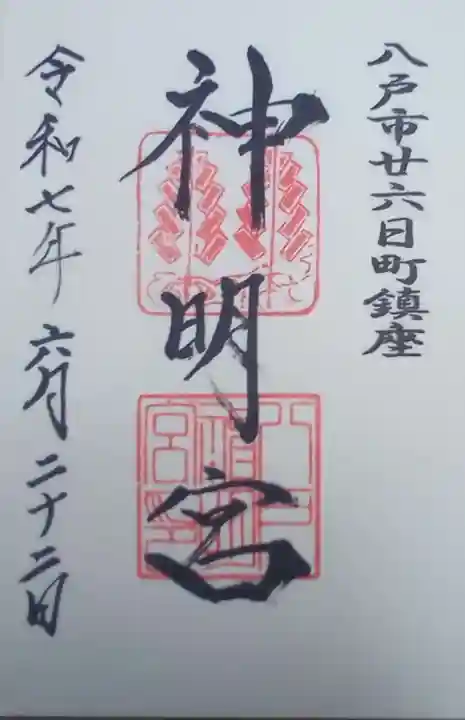 八戸市廿六日町鎮座
神明宮
令和七年六月二十二日